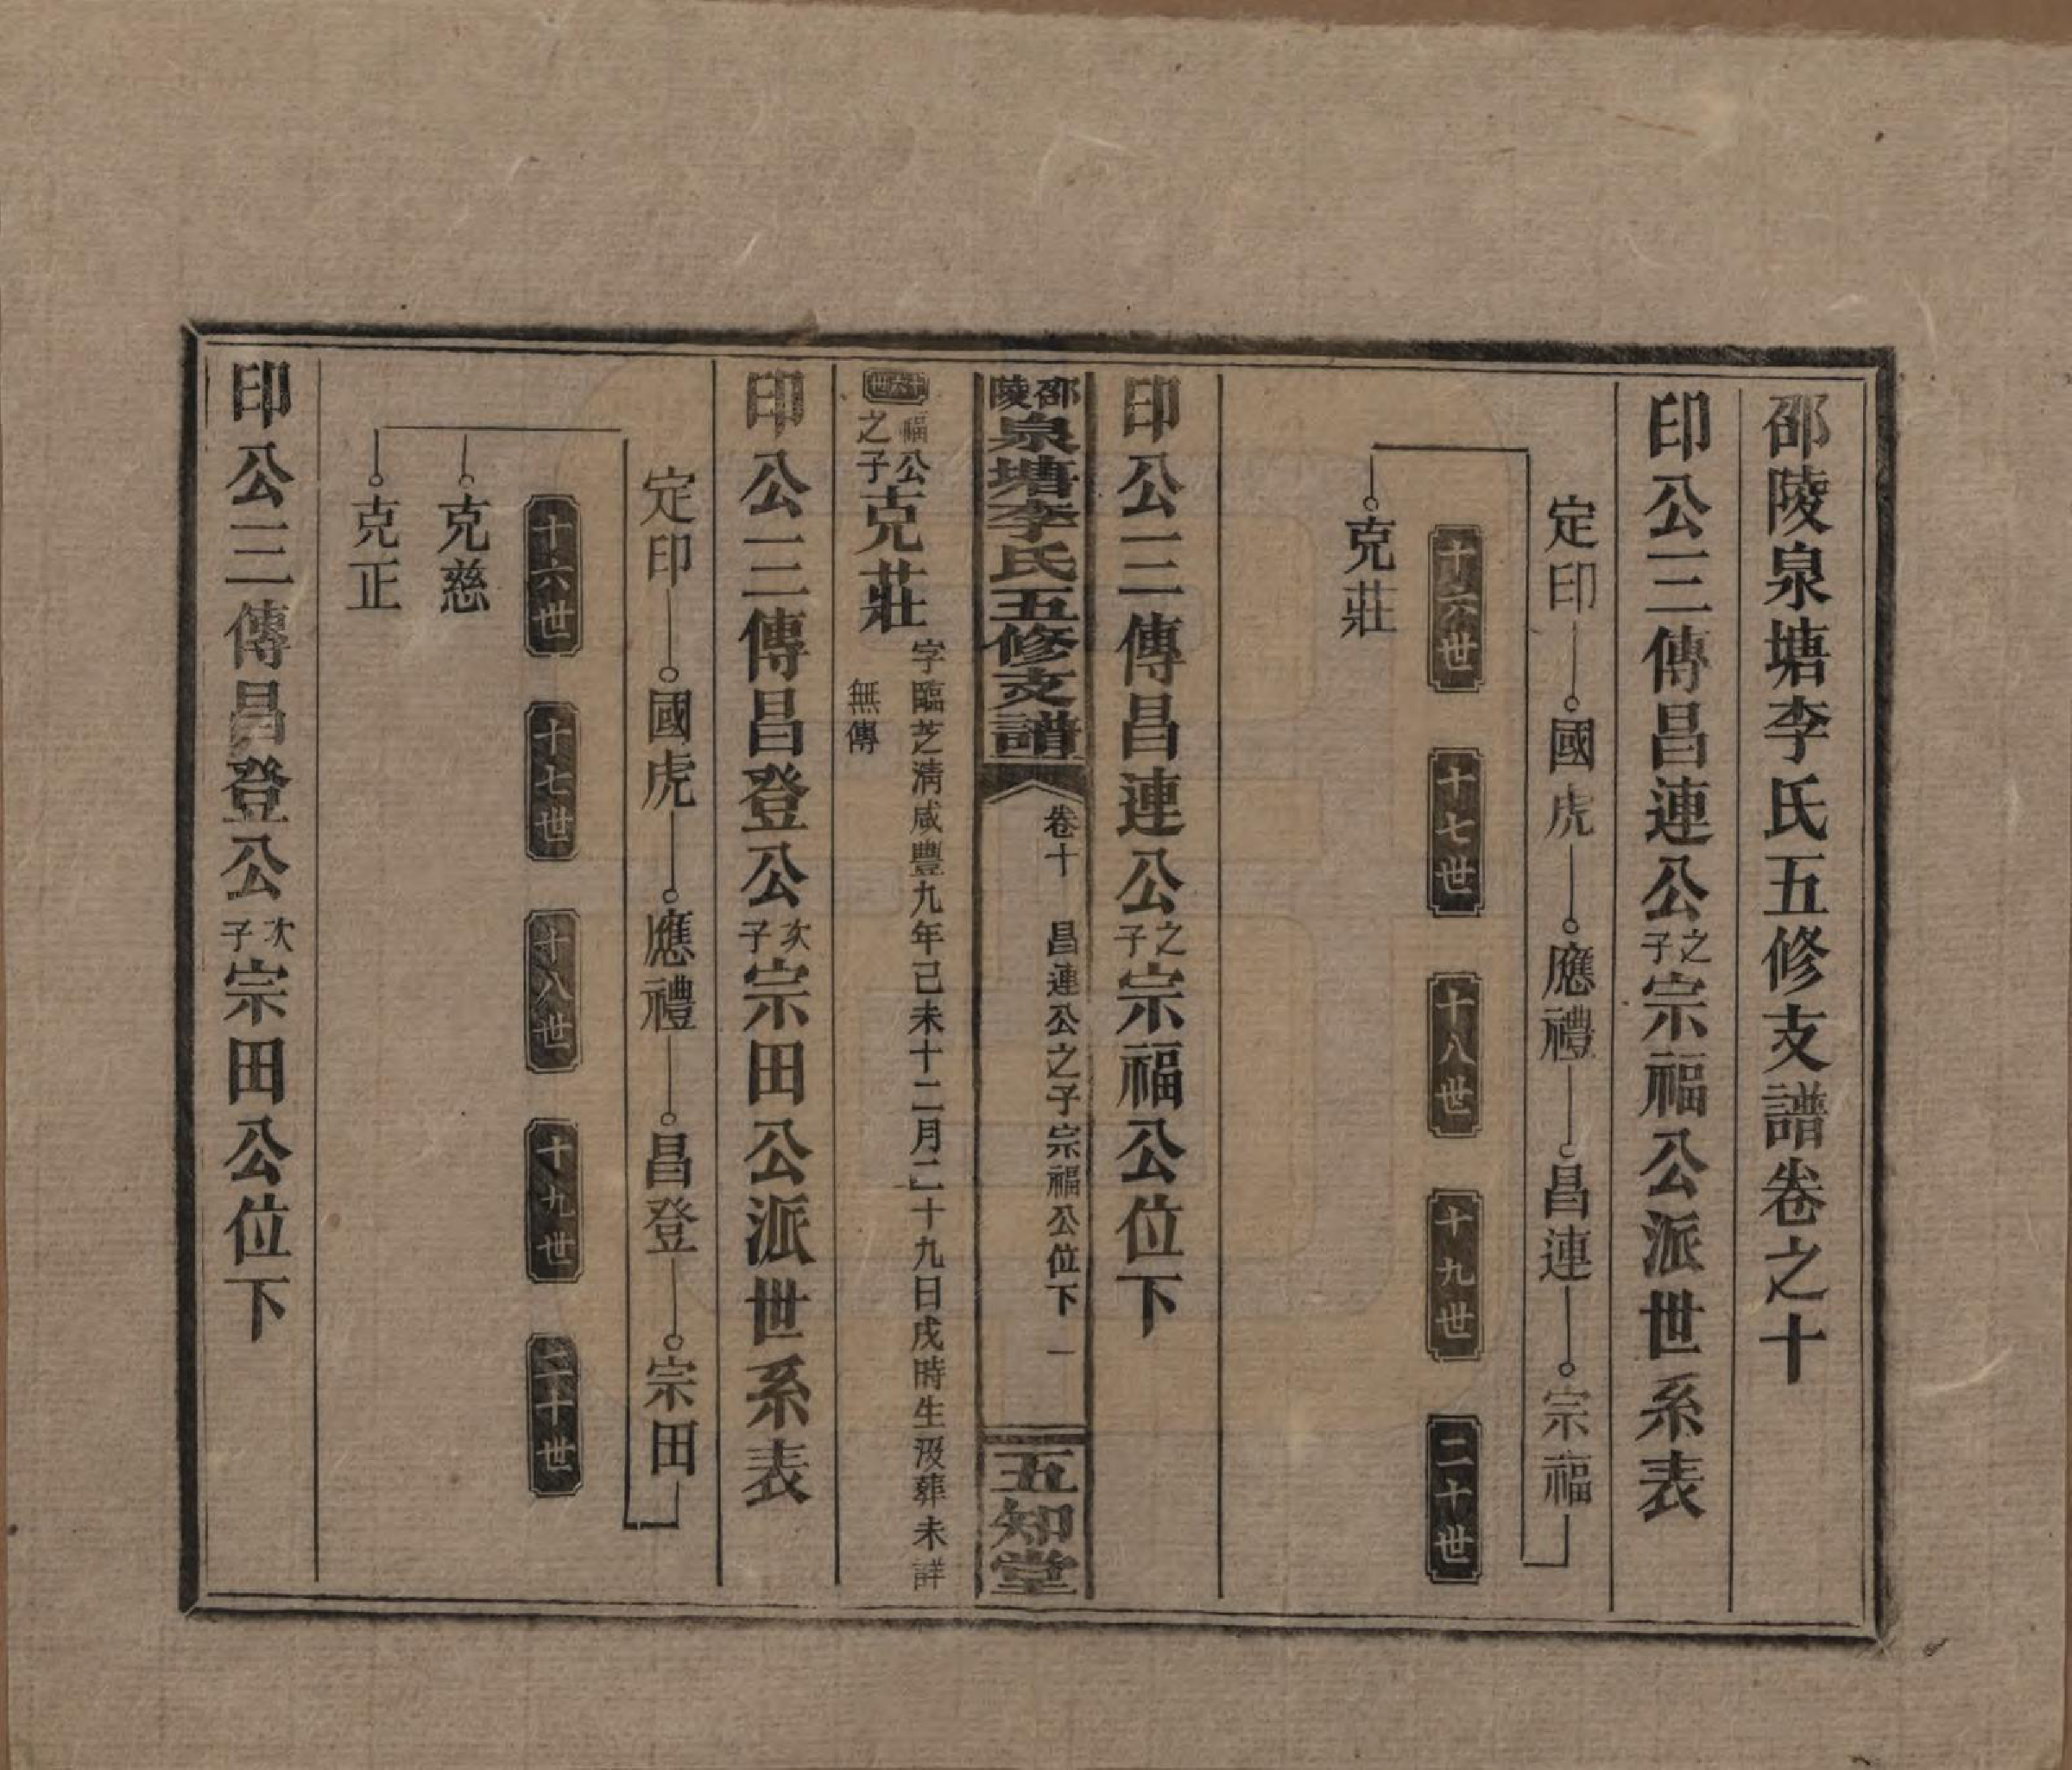 邵陵泉塘李氏五修支譜卷之十
印公三傳昌連公之子宗福公派世系表
定印 國虎 應禮 昌連 宗福
十六世 十七世 十八世 十九世 二十世
克莊
印公三傳昌連公之子宗福公位下
邵陵泉塘李氏五修支譜 卷十 昌連公之子宗福公位下 一 五知堂
十六世 福公之子克莊 字臨芝清咸豐九年己未十二月二十九日戌時生歿葬未詳
無傳
印公三傳昌登公次子宗田公派世系表
定印 國虎 應禮 昌登 宗田
十六世 十七世 十八世 十九世 二十世
克慈
克正
印公三傳昌登公次子宗田公位下